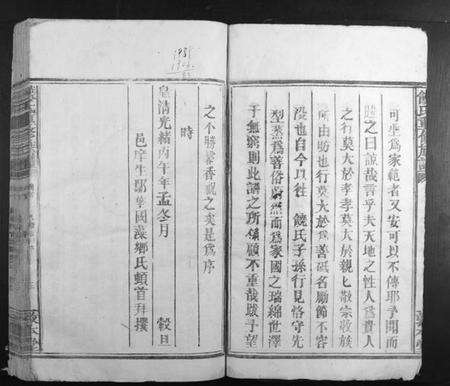 可坐爲家範者又安可以不傳耶予聞而
之曰誠哉言乎夫天地之性人爲貴人
之行莫大於孝孝莫大於親匕敬宗收族
所由昉也行莫大於善砥名勵節不容
没也自今以往 饒氏子孫行見恪守先
型蒸爲善俗蔚然而爲家國之瑞綿世澤
于無窮則此譜之所係顧不重哉跋予望
之不勝馨香祝之矣是爲序
時
皇清光緒丙午年孟冬月 穀旦
邑庠生鄒華國 鄉氏頓首拜撰